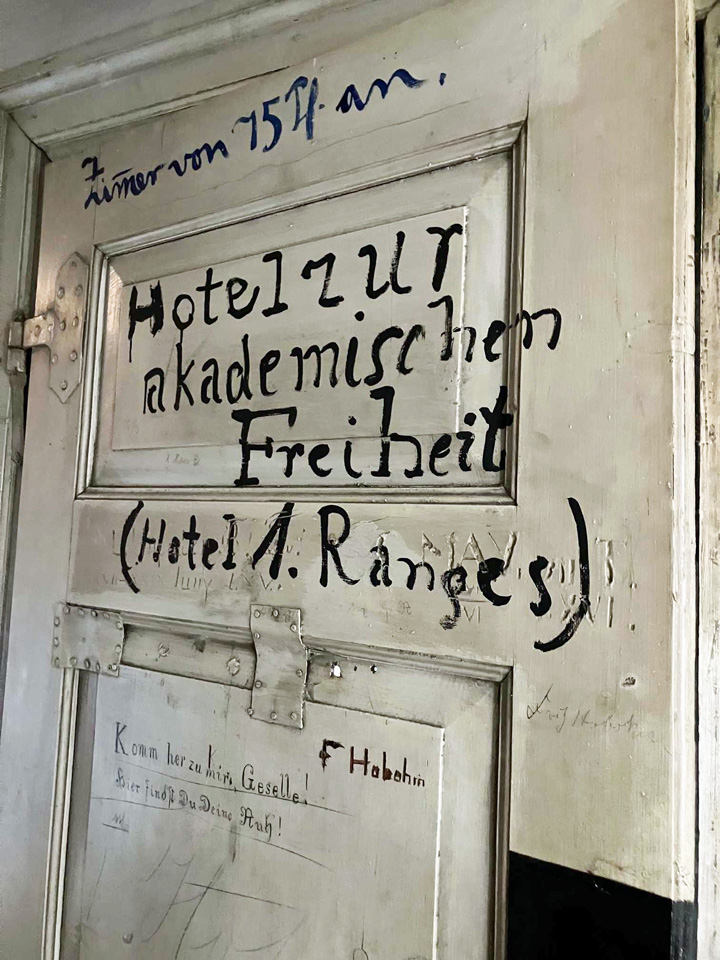 Zim̄er von 75 Pf. an.
Hotel zur
akademischen
Freiheit
(Hotel 1. Ranges)
Komm her zu mir, Geselle!
Hier findst Du Deine Ruh!
F Habohm